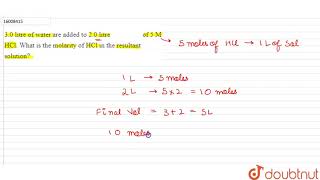 16008415
3.0 litre of water are added to 2.0 litre of 5 M
HCl. What is the molarity of HCl in the resultant
solution?
→ 5 moles of HCl → 1L of Sol
1L → 5 moles
2L → 5 x 2 = 10 moles
Final Vol = 3+2 = 5L
10 moles
doubtnut